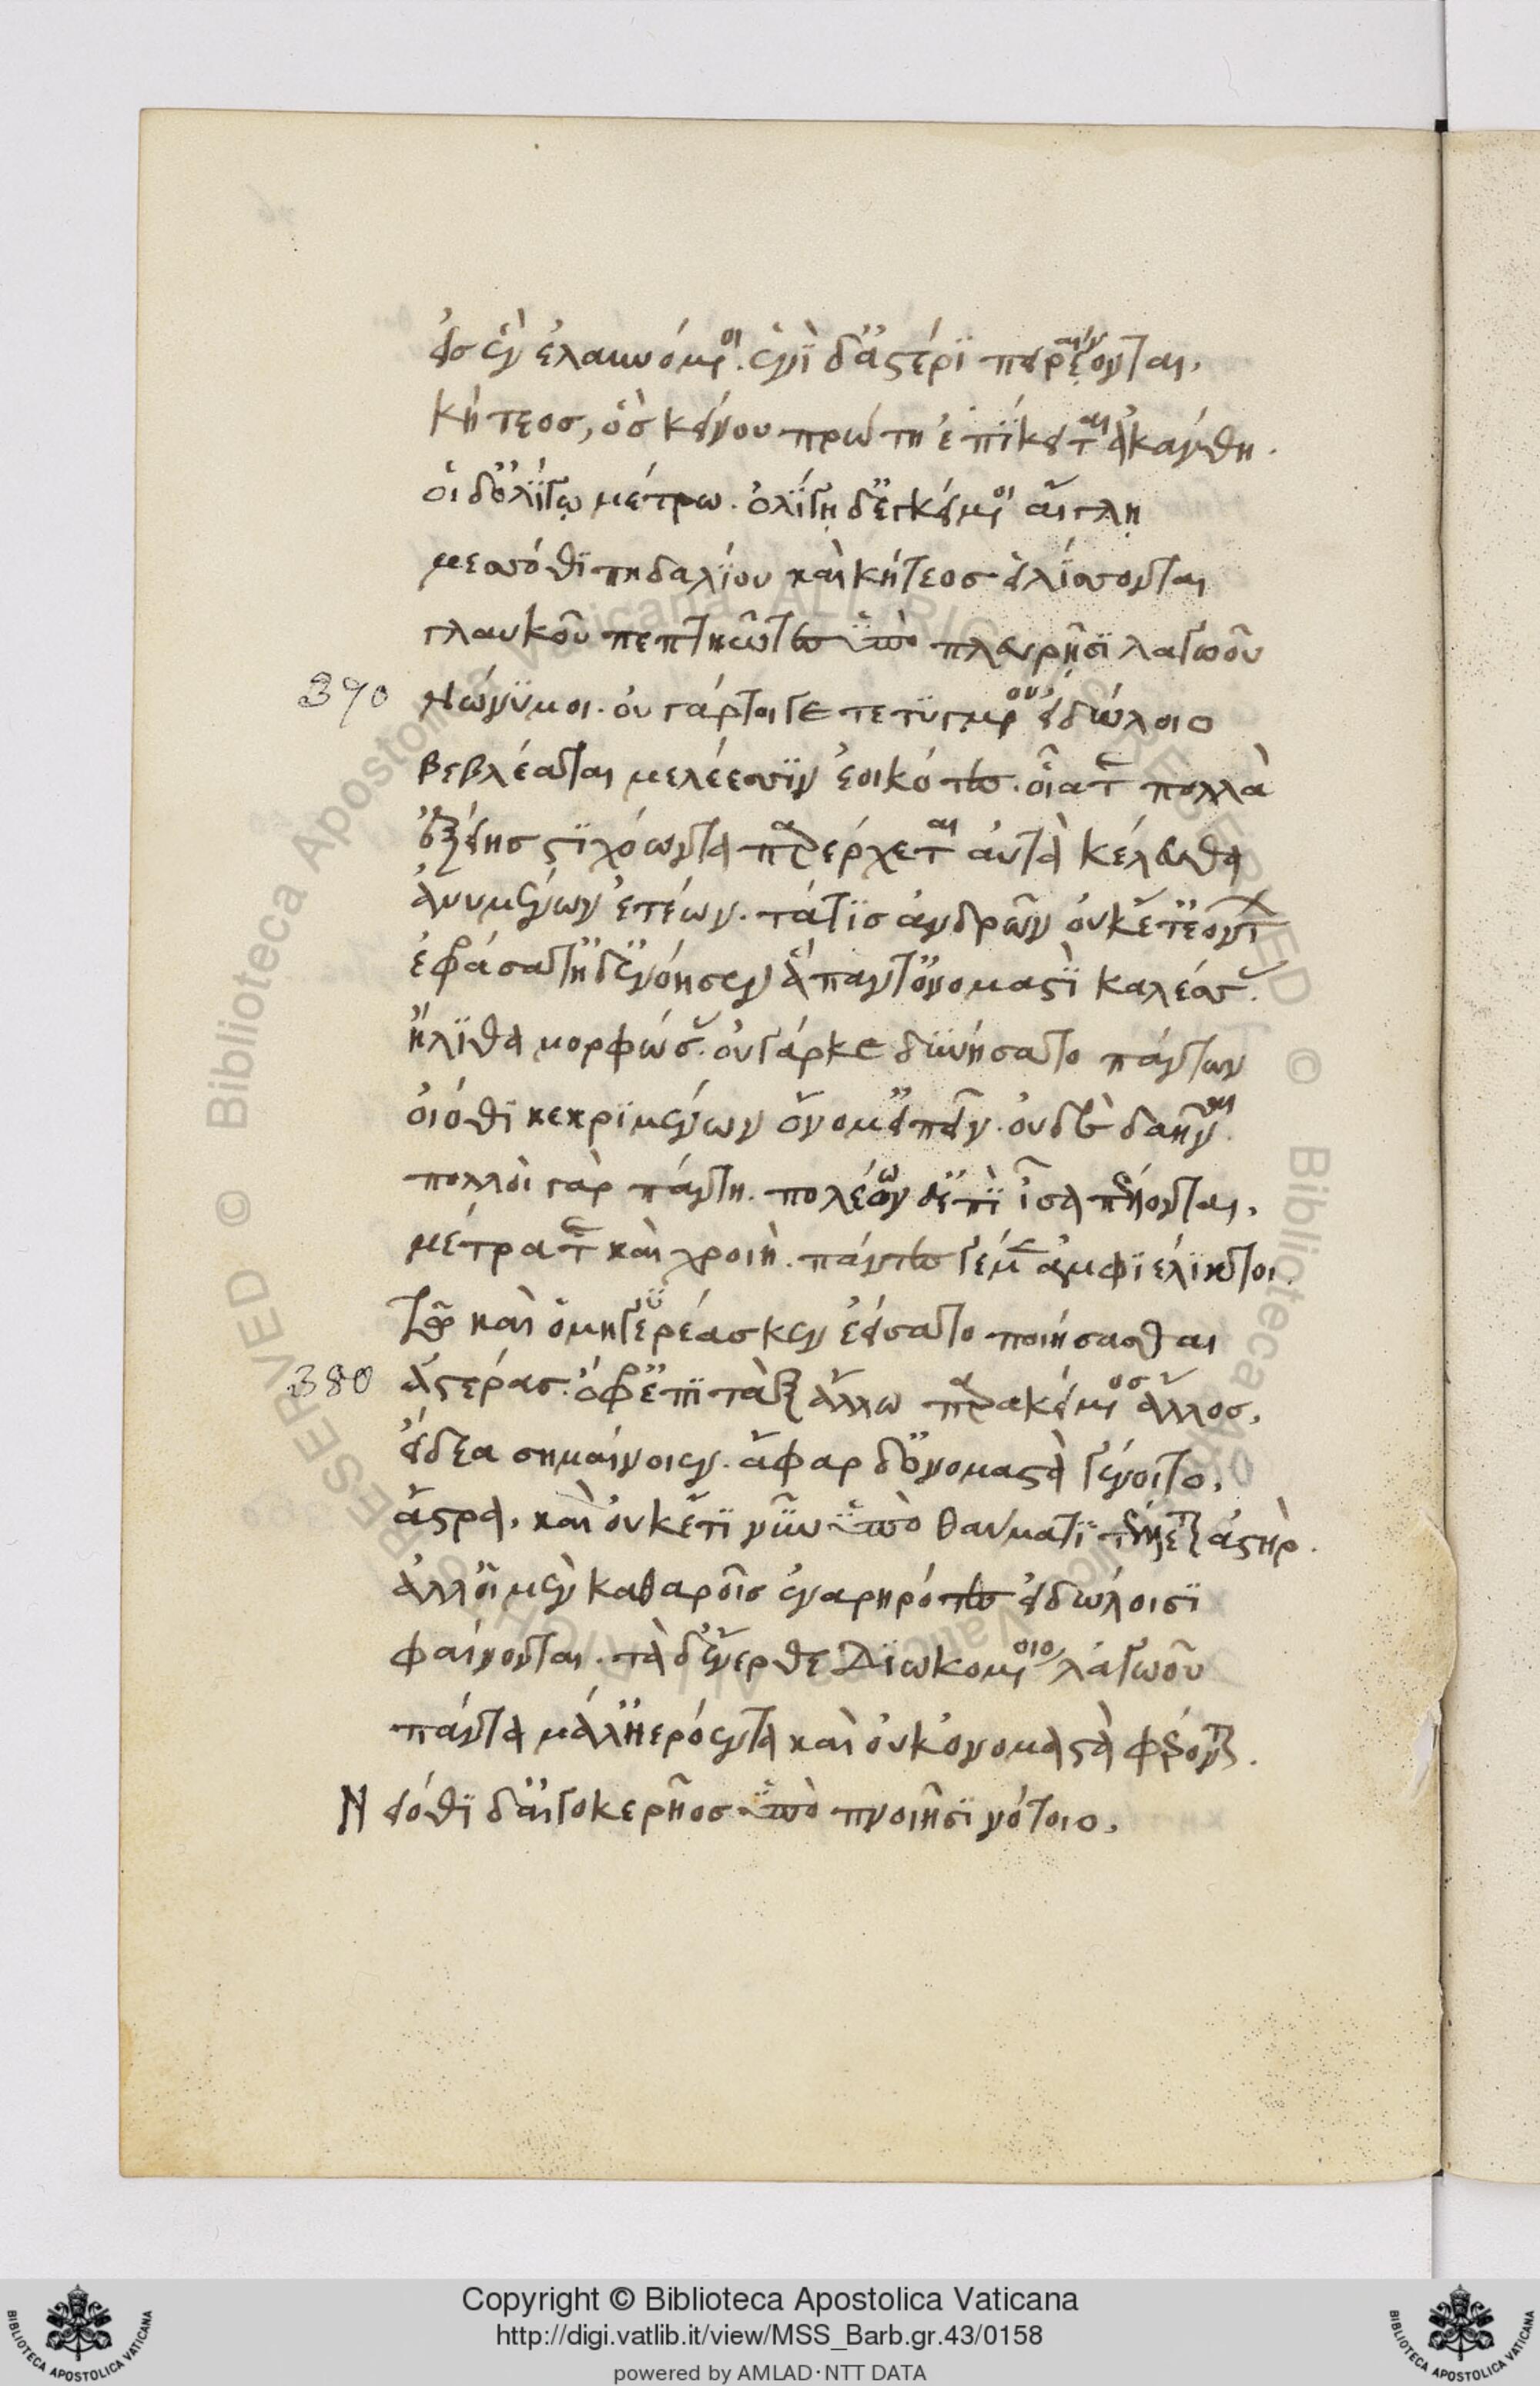 εἰσ ἓν ἐλαυνόμενοι. ἑνὶ δ' ἀστέρι πειραίνονται,
κήτεοσ, ὃσ κείνου πρώτη ἐπίκειται ἀκάνθη.
οἱ δ' ὀλίγω μέτρω. ὀλίγῃ δ' ἐγκείμενοι αἴγλῃ
μεσσόθι πηδαλίου καὶ κήτεοσ εἱλίσσονται
γλαυκοῦ πεπτηῶτες ὑπὸ πλευρῇσι λαγωοῦ
370 Νώνυμοι. οὐ γάρ τοι γε τετυγμένου εἰδώλοιο
βεβλέαται μελέεσσιν ἐοικότες. οἷά τε πολλὰ
ἑξείησ στιχόωντα παρέρχεται αὐτὰ κέλευθα
ἀνυμένων ἐτέων. τά τις ἀνδρῶν οὐκέτ' ἐόντων
ἐφράσατ' ἠδ' ἐνόησεν ἅπαντ' ὀνομαστὶ καλέσας.
ἤλιθα μορφώσας. οὐ γάρ κε δυνήσατο πάντων
οἰόθι κεκριμένων ὄνομ' εἰπεῖν. οὐδὲ δαῆναι
πολλοὶ γὰρ πάντη. πολέων δ' ἐπὶ ἶσα πέλονται,
μέτρα τε καὶ χροιὴ. πάντες γε μὲν ἀμφιέλικτοι.
τῶ καὶ ὁμηγερέασ κεν ἐείσατο ποιήσασθαι
380 ἀστέρασ. ὄφρ' ἐπιτὰξ ἄλλω παρακείμενοσ ἄλλοσ,
εἴδεα σημαίνοιεν. ἄφαρ δ' ὀνομαστὰ γένοιτο,
ἄστρα, καὶ οὐκέτι νῦν ὑπὸ θαύματι τέλλεται ἀστήρ.
ἀλλ' οἱ μὲν καθαροῖσ ἐναρηρότες εἰδώλοισι
φαίνονται. τὰ δ' ἔνερθε διωκομένοιο λαγωοῦ
πάντα μάλ' ἠερόεντα καὶ οὐκ ὀνομαστὰ φέρονται.
Νειόθι δ' αἰγοκερῆοσ ὑπὸ πνοιῇσι νότοιο,
Copyright © Biblioteca Apostolica Vaticana
http://digi.vatlib.it/view/MSS_Barb.gr.43/0158
powered by AMLAD·NTT DATA